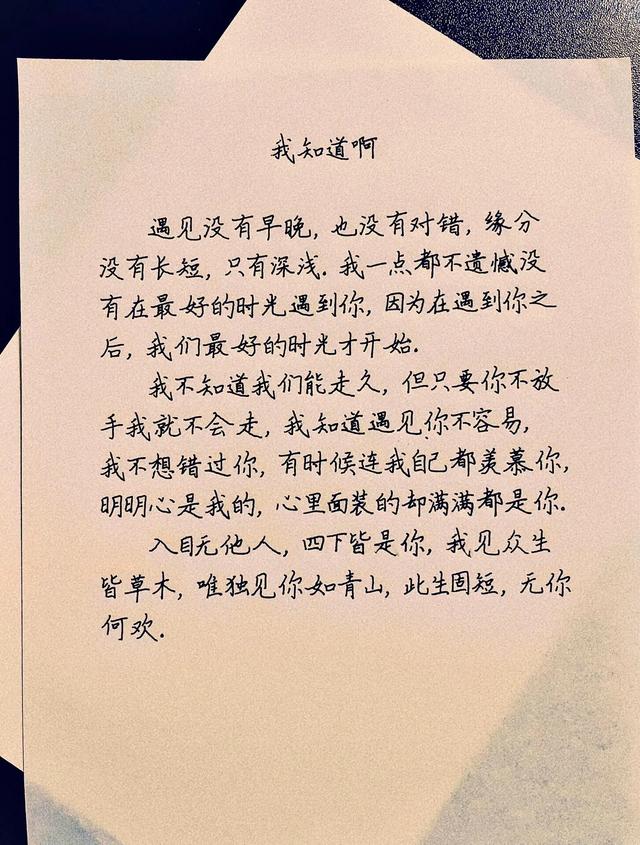 我知道啊
遇见没有早晚,也没有对错,缘分
没有长短,只有深浅.我一点都不遗憾没
有在最好的时光遇到你,因为在遇到你之
后,我们最好的时光才开始.
我不知道我们能走久,但只要你不放
手我就不会走,我知道遇见你不容易,
我不想错过你,有时候连我自己都羡慕你,
明明心是我的,心里面装的却满满都是你.
入目无他人,四下皆是你,我见众生
皆草木,唯独见你如青山,此生固短,无你
何欢.